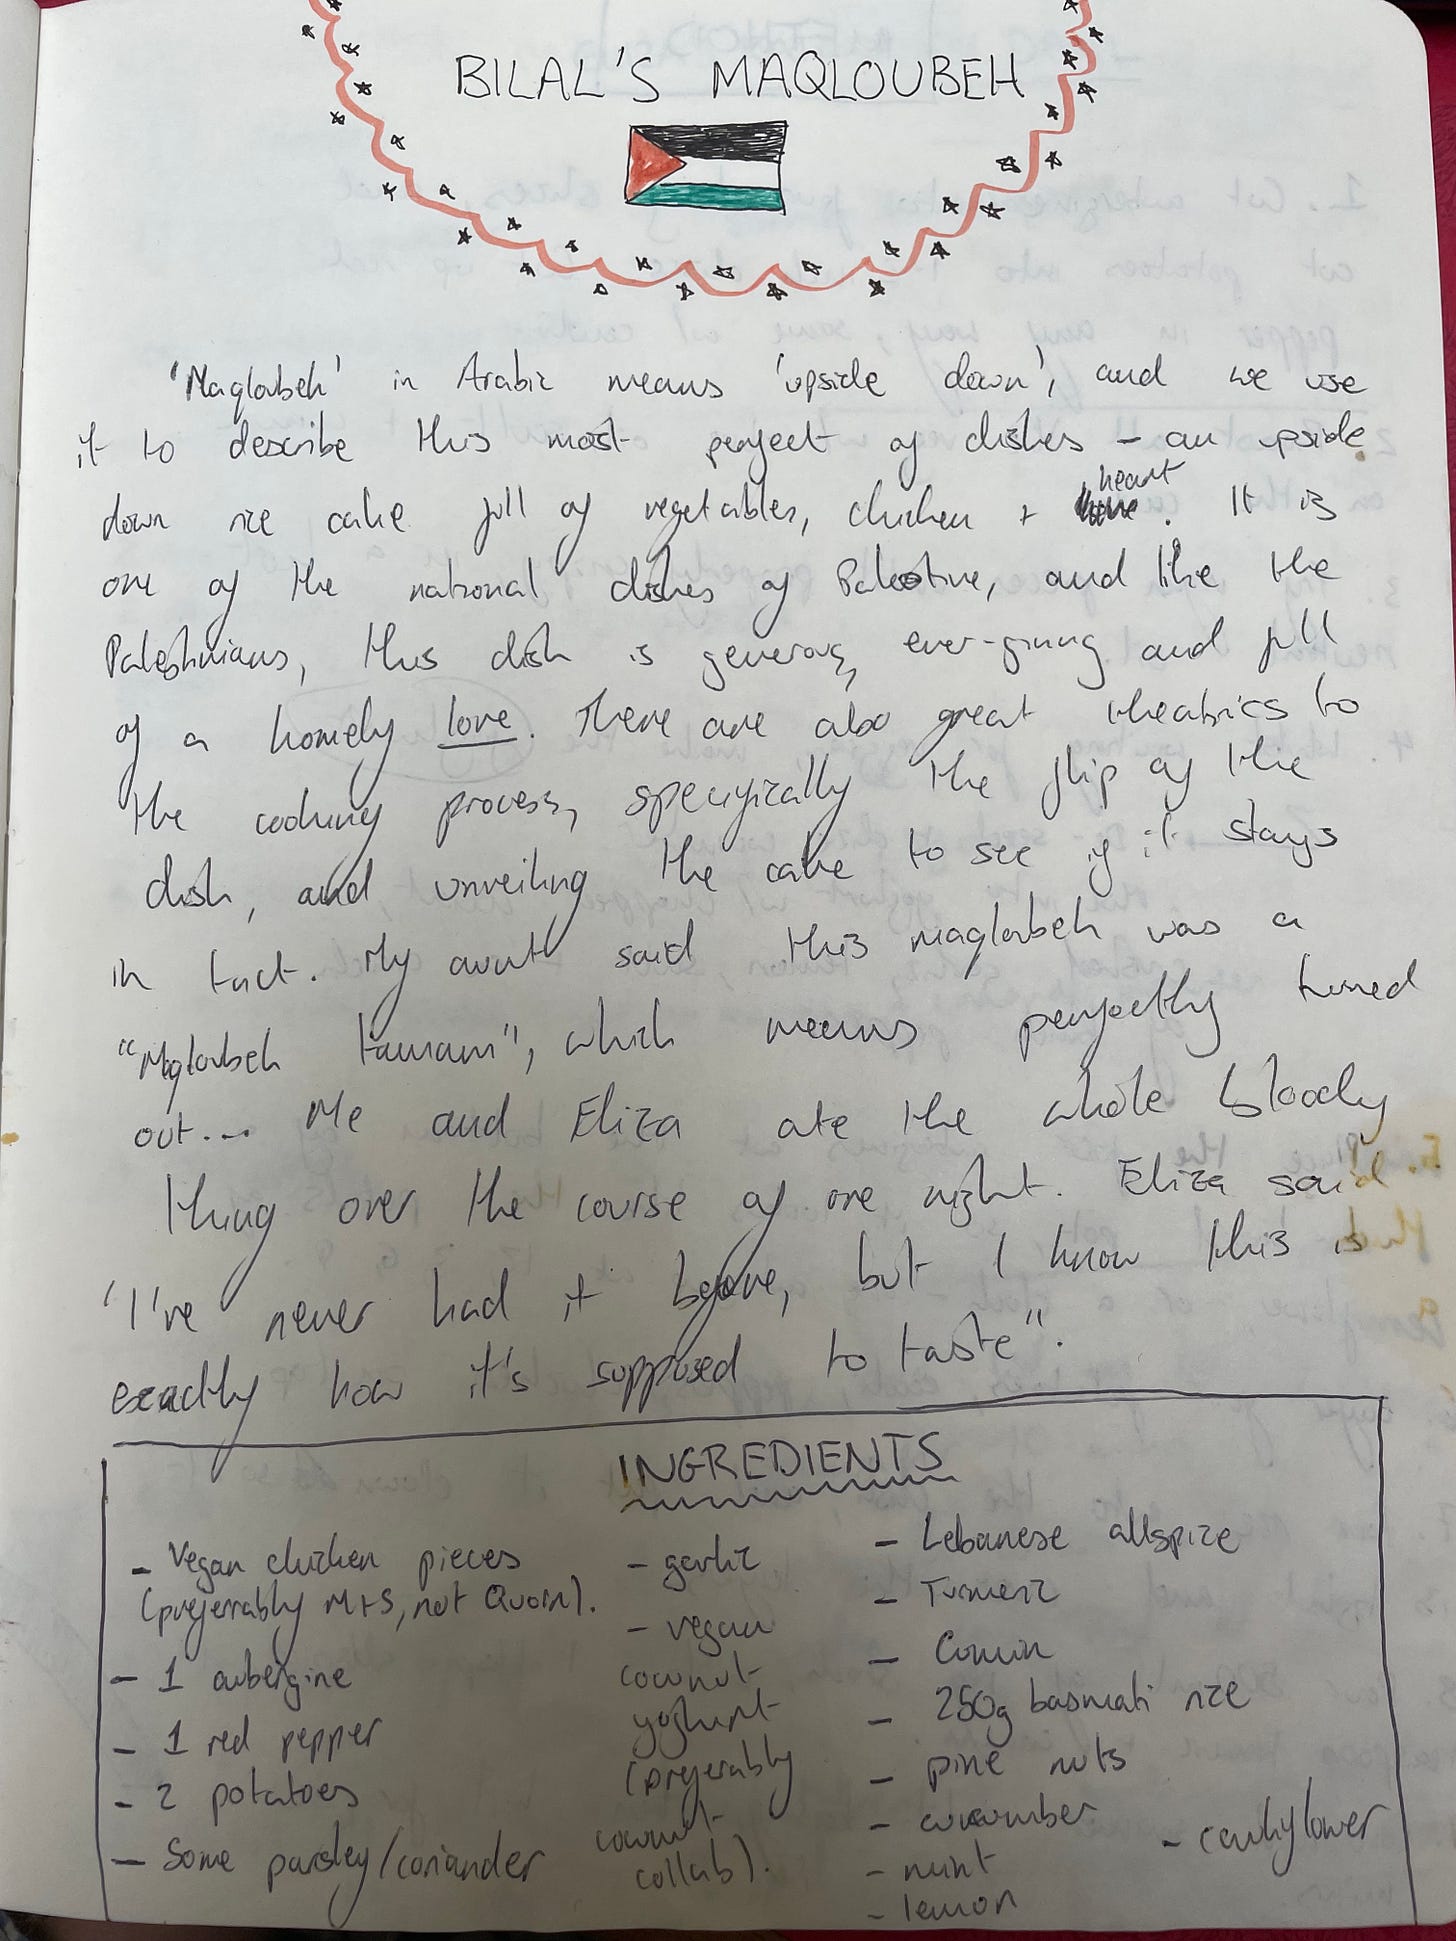 BILAL'S MAQLOUBEH
'Maqloubeh' in Arabic means 'upside down', and we use
it to describe this most perfect of dishes – an upside
down rice cake full of vegetables, chicken + heart. It is
one of the national dishes of Palestine, and like the
Palestinians, this dish is generous, ever-giving and full
of a homely love. There are also great theatrics to
the cooking process, specifically the flip of the
dish, and unveiling the cake to see if it stays
in tact. My aunt said this maqloubeh was a
"Mqloubeh tamam", which means perfectly turned
out... Me and Eliza ate the whole bloody
thing over the course of one night. Eliza said
'I've never had it before, but I know this is
exactly how it's supposed to taste".
INGREDIENTS
- Vegan chicken pieces
(preferrably M+S, not Quorn).
- 1 aubergine
- 1 red pepper
- 2 potatoes
- Some parsley/coriander
- garlic
- vegan
coconut
yoghurt
(preferably
coconut
collab).
- Lebanese allspice
- Turmeric
- Cumin
- 250g basmati rice
- pine nuts
- cucumber
- mint
- lemon
- cauliflower